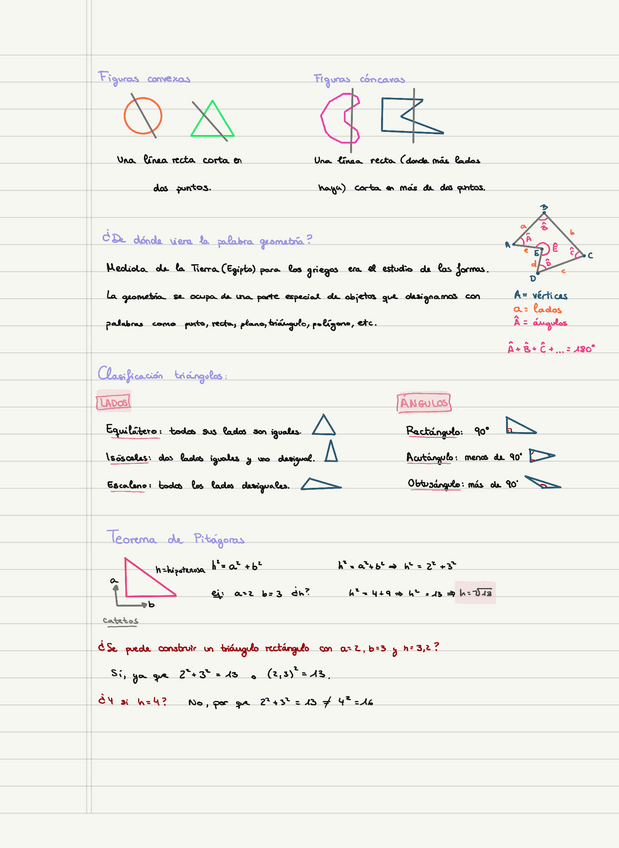 Figuras convexas
Figuras cóncavas
Una línea recta corta en
dos puntos.
Una línea recta (donde más lados
haya) corta en más de dos puntos.
¿De dónde viene la palabra geometría?
Medida de la Tierra (Egipto) para los griegos era el estudio de las formas.
La geometría se ocupa de una parte especial de objetos que designamos con
palabras como punto, recta, plano, triángulo, polígono, etc.
B
a B̂ b
A Â e E Ê Ĉ C
d D̂ c
D
A = vértices
a = lados
Â = ángulos
Â + B̂ + Ĉ + ... = 180°
Clasificación triángulos:
LADOS
Equilátero: todos sus lados son iguales.
Isósceles: dos lados iguales y uno desigual.
Escaleno: todos los lados desiguales.
ÁNGULOS
Rectángulo: 90°
Acutángulo: menos de 90°
Obtusángulo: más de 90°
Teorema de Pitágoras
a
h=hipotenusa
b
catetos
h² = a² + b²
ej: a=2 b=3 ¿h?
h² = a²+b² ⇒ h² = 2² + 3²
h² = 4+9 ⇒ h² = 13 ⇒ h = √13
¿Se puede construir un triángulo rectángulo con a=2, b=3 y h=3,2?
Sí, ya que 2² + 3² = 13 o (2,3)² = 13.
¿Y si h=4? No, por que 2² + 3² = 13 ≠ 4² = 16